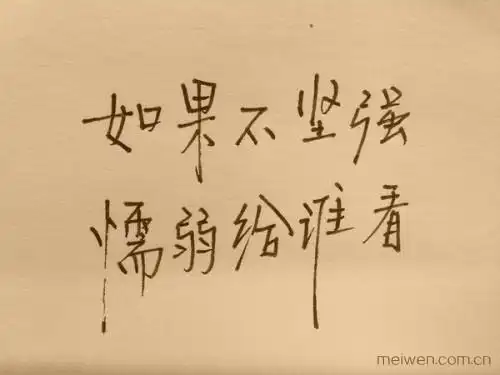 如果不坚强
懦弱给谁看
meiwen.com.cn